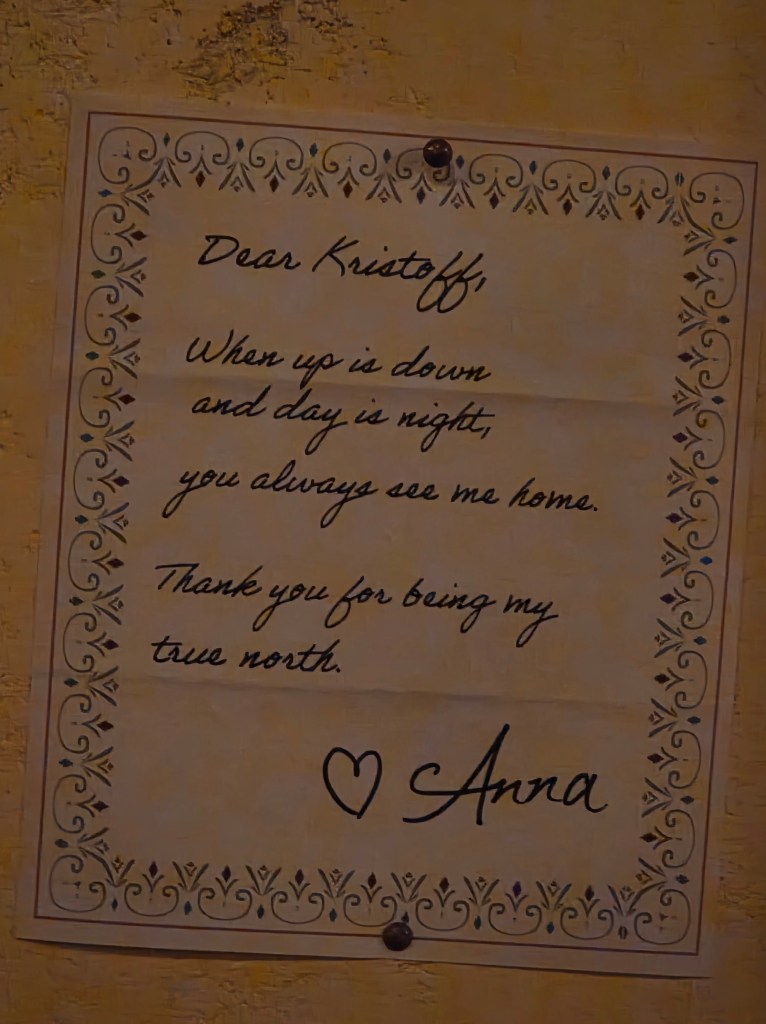 Dear Kristoff,
When up is down
and day is night,
you always see me home.
Thank you for being my
true north.
♡ Anna